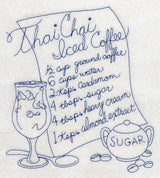 Thai Chai
Iced Coffee
½ cup ground coffee
6 cups water
2 tsps cardamom
4 tbsps sugar
4 tbsps heavy cream
1 tsps almond extract
SUGAR